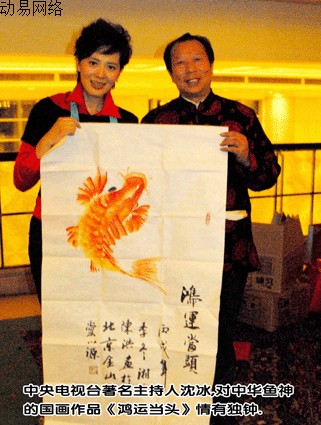 动易网络
鴻運當頭
丙戌年
陳洪画於
北京金山
中央电视台著名主持人沈冰,对中华鱼神
的国画作品《鸿运当头》情有独钟.